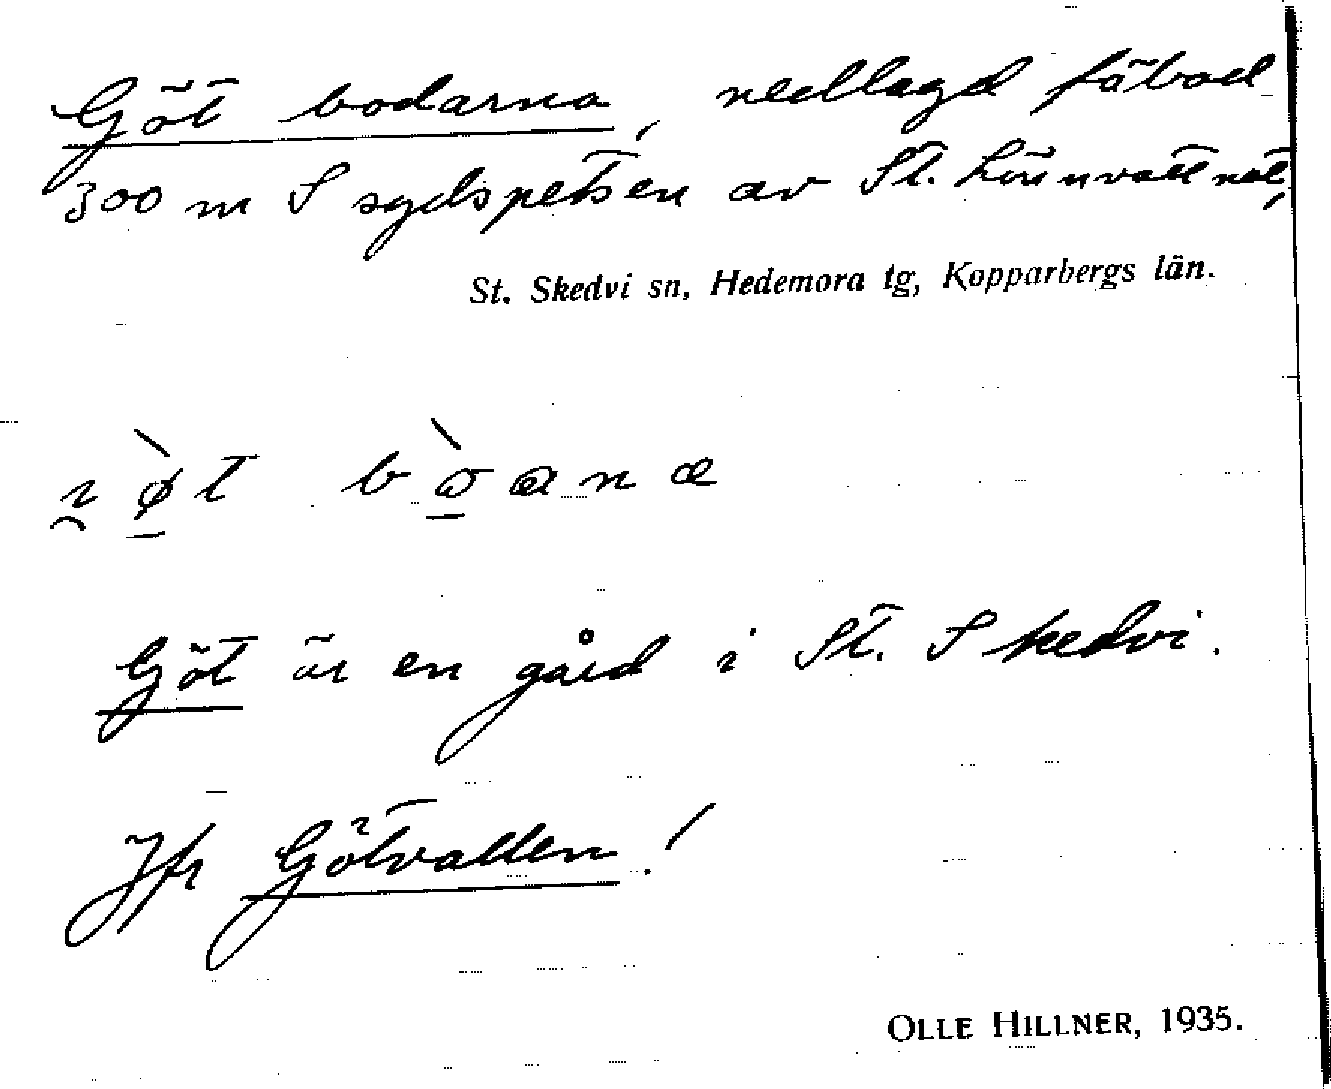 Göt bodarna, nedlagd fäbod
300 m S sydspetsen av St.
St. Skedvi sn, Hedemora tg, Kopparbergs län.
Göt är en gård i St. Skedvi.
Jfr Götvallen!
OLLE HILLNER, 1935.